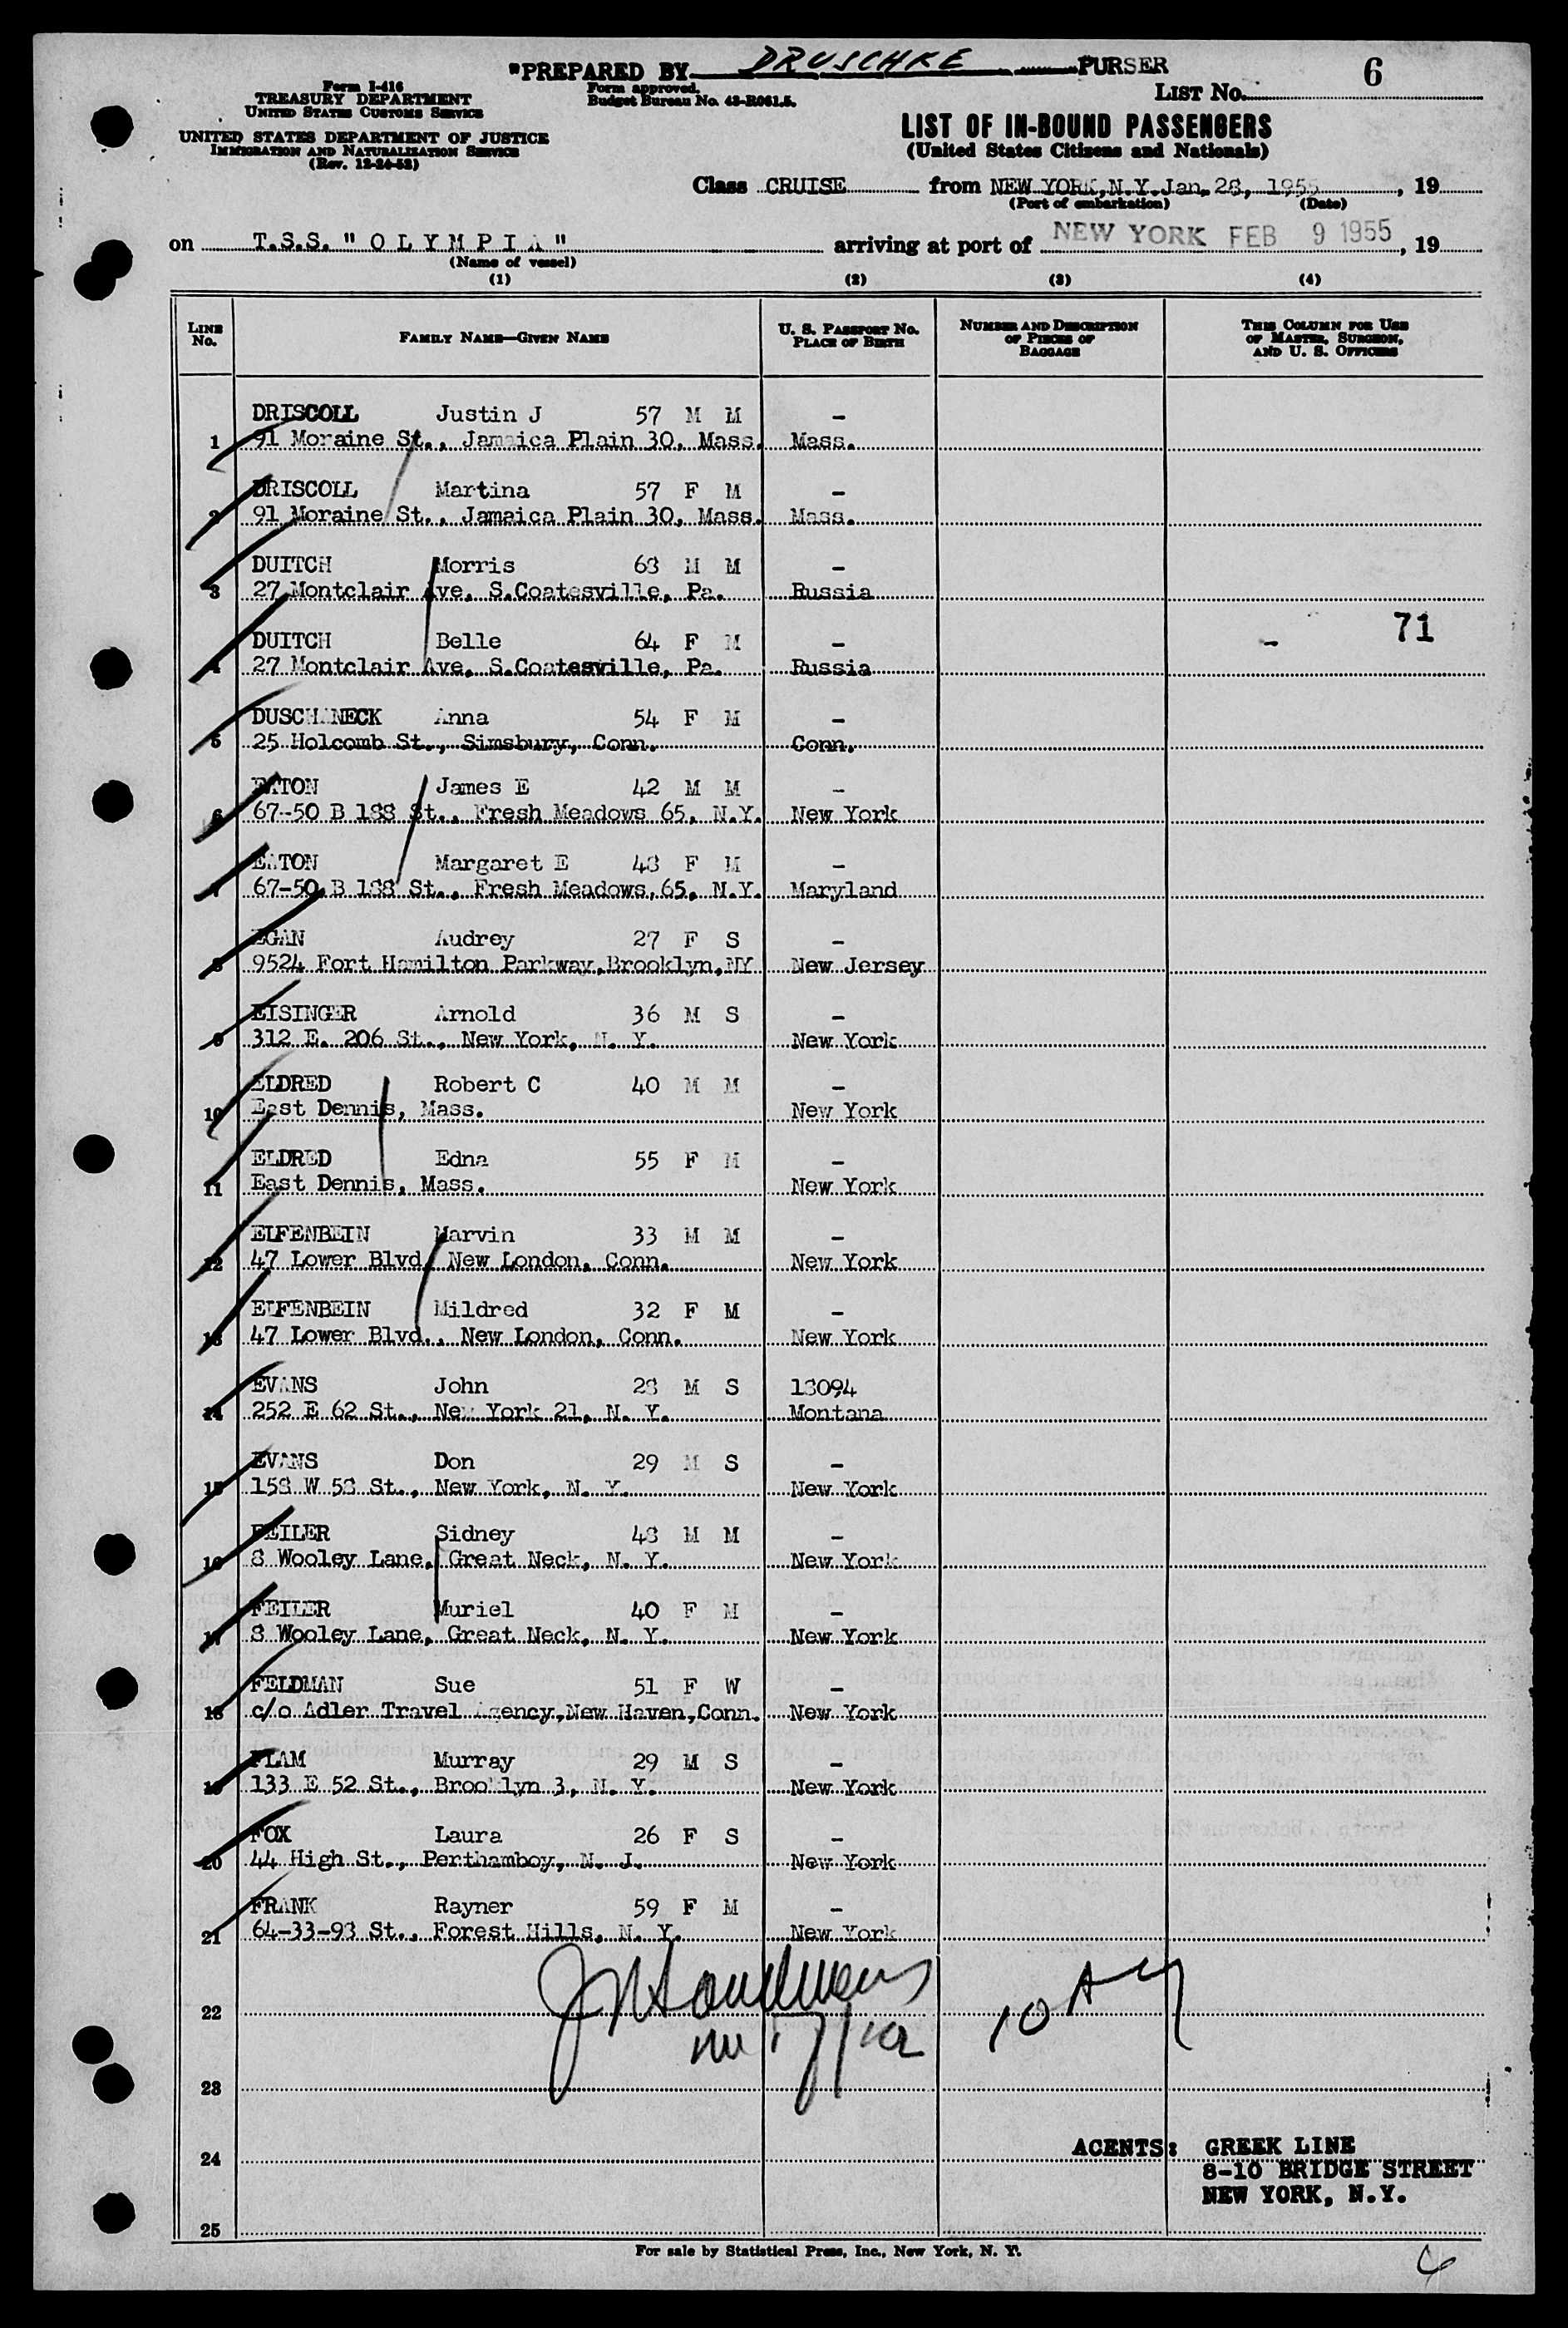 "PREPARED BY DRUSCHKE PURSER
Form I-416
TREASURY DEPARTMENT
UNITED STATES CUSTOMS SERVICE
Form approved.
Budget Bureau No. 43-R061.5.
LIST No. 6
UNITED STATES DEPARTMENT OF JUSTICE
IMMIGRATION AND NATURALIZATION SERVICE
(Rev. 12-24-52)
LIST OF IN-BOUND PASSENGERS
(United States Citizens and Nationals)
Class CRUISE from NEW YORK, N.Y. Jan. 28, 1955, 19
(Port of embarkation) (Date)
on T.S.S. "OLYMPIA" arriving at port of NEW YORK FEB 9 1955, 19
(Name of vessel)
(1) (2) (3) (4)
LINE No. FAMILY NAME—GIVEN NAME U. S. PASSPORT No. PLACE OF BIRTH NUMBER AND DESCRIPTION OF PIECES OF BAGGAGE THIS COLUMN FOR USE OF MASTER, SURGEON, AND U. S. OFFICERS
DRISCOLL Justin J 57 M M -
1 91 Moraine St., Jamaica Plain 30, Mass. Mass.
DRISCOLL Martina 57 F M -
2 91 Moraine St., Jamaica Plain 30, Mass. Mass.
DUITCH Morris 68 M M -
3 27 Montclair Ave, S.Coatesville, Pa. Russia
DUITCH Belle 64 F M - - 71
4 27 Montclair Ave, S.Coatesville, Pa. Russia
DUSCHANECK Anna 54 F M -
5 25 Holcomb St., Simsbury, Conn. Conn.
EATON James E 42 M M -
6 67-50 B 188 St., Fresh Meadows 65, N.Y. New York
EATON Margaret E 48 F M -
7 67-50 B 188 St., Fresh Meadows, 65, N.Y. Maryland
EGAN Audrey 27 F S -
8 9524 Fort Hamilton Parkway, Brooklyn, NY New Jersey
EISINGER Arnold 36 M S -
9 312 E. 206 St., New York, N. Y. New York
ELDRED Robert C 40 M M -
10 East Dennis, Mass. New York
ELDRED Edna 55 F M -
11 East Dennis, Mass. New York
ELFENBEIN Marvin 33 M M -
12 47 Lower Blvd, New London, Conn. New York
ELFENBEIN Mildred 32 F M -
13 47 Lower Blvd., New London, Conn. New York
EVANS John 28 M S 18094
14 252 E 62 St., New York 21, N. Y. Montana
EVANS Don 29 M S -
15 158 W 58 St., New York, N. Y. New York
FEILER Sidney 48 M M -
16 8 Wooley Lane, Great Neck, N. Y. New York
FEILER Muriel 40 F M -
17 8 Wooley Lane, Great Neck, N. Y. New York
FELDMAN Sue 51 F W -
18 c/o Adler Travel Agency, New Haven, Conn. New York
FLAM Murray 29 M S -
19 133 E 52 St., Brooklyn 3, N. Y. New York
FOX Laura 26 F S -
20 44 High St., Perthamboy, N. J. New York
FRANK Rayner 59 F M -
21 64-33-98 St., Forest Hills, N. Y. New York
22
23
24
AGENTS: GREEK LINE
8-10 BRIDGE STREET
NEW YORK, N.Y.
25
For sale by Statistical Press, Inc., New York, N. Y.